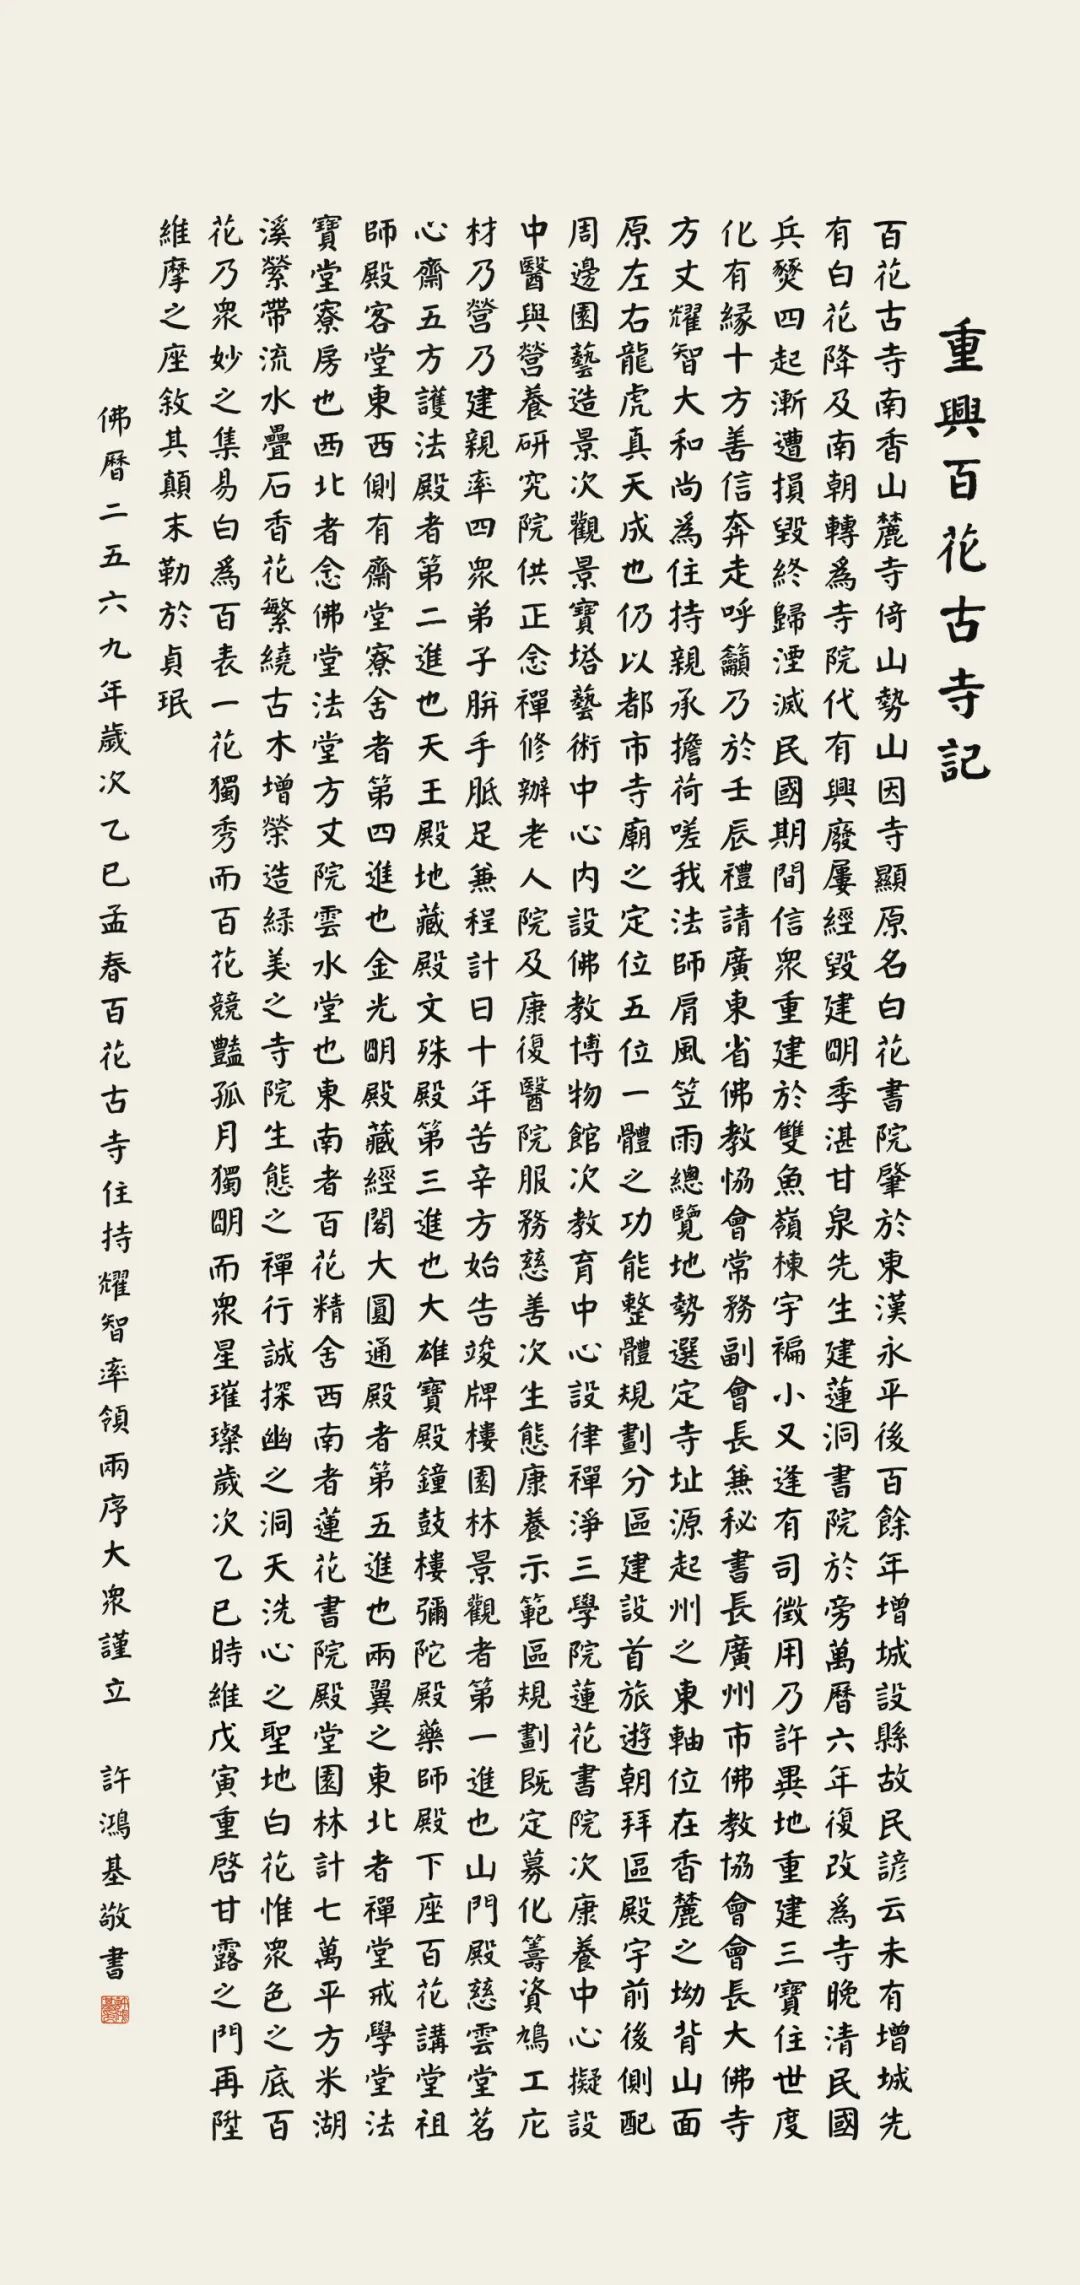 重興百花古寺記
百花古寺南香山麓寺倚山勢山因寺顯原名白花書院肇於東漢永平後百餘年增城設縣故民諺云未有增城先
有白花降及南朝轉爲寺院代有興廢屢經毀建明季湛甘泉先生建蓮洞書院於旁萬曆六年復改爲寺晚清民國
兵燹四起漸遭損毀終歸湮滅民國期間信衆重建於雙魚嶺棟宇褊小又逢有司徵用乃許異地重建三寶住世度
化有緣十方善信奔走呼籲乃於壬辰禮請廣東省佛教協會常務副會長兼秘書長廣州市佛教協會會長大佛寺
方丈耀智大和尚爲住持親承擔荷嗟我法師肩風笠雨總覽地勢選定寺址源起州之東軸位在香麓之坳背山面
原左右龍虎真天成也仍以都市寺廟之定位五位一體之功能整體規劃分區建設首旅遊朝拜區殿宇前後側配
周邊園藝造景次觀景寶塔藝術中心内設佛教博物館次教育中心設律禪淨三學院蓮花書院次康養中心擬設
中醫與營養研究院供正念禪修辦老人院及康復醫院服務慈善次生態康養示範區規劃既定募化籌資鳩工庀
材乃營乃建親率四衆弟子胼手胝足兼程計日十年苦辛方始告竣牌樓園林景觀者第一進也山門殿慈雲堂茗
心齋五方護法殿者第二進也天王殿地藏殿文殊殿第三進也大雄寶殿鐘鼓樓彌陀殿藥師殿下座百花講堂祖
師殿客堂東西側有齋堂寮舍者第四進也金光明殿藏經閣大圓通殿者第五進也兩翼之東北者禪堂戒學堂法
寶堂寮房也西北者念佛堂法堂方丈院雲水堂也東南者百花精舍西南者蓮花書院殿堂園林計七萬平方米湖
溪縈帶流水疊石香花繁繞古木增榮造緑美之寺院生態之禪行誠探幽之洞天洗心之聖地白花惟衆色之底百
花乃衆妙之集易白爲百表一花獨秀而百花競豔孤月獨明而衆星璀璨歲次乙巳時維戊寅重啓甘露之門再陞
維摩之座敘其顛末勒於貞珉
佛曆二五六九年歲次乙巳孟春百花古寺住持耀智率領兩序大衆謹立 許鴻基敬書